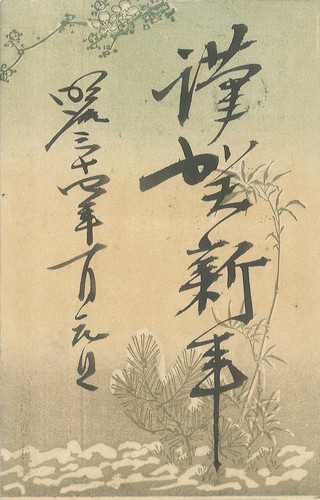 謹賀新年
明治三十四年一月元旦